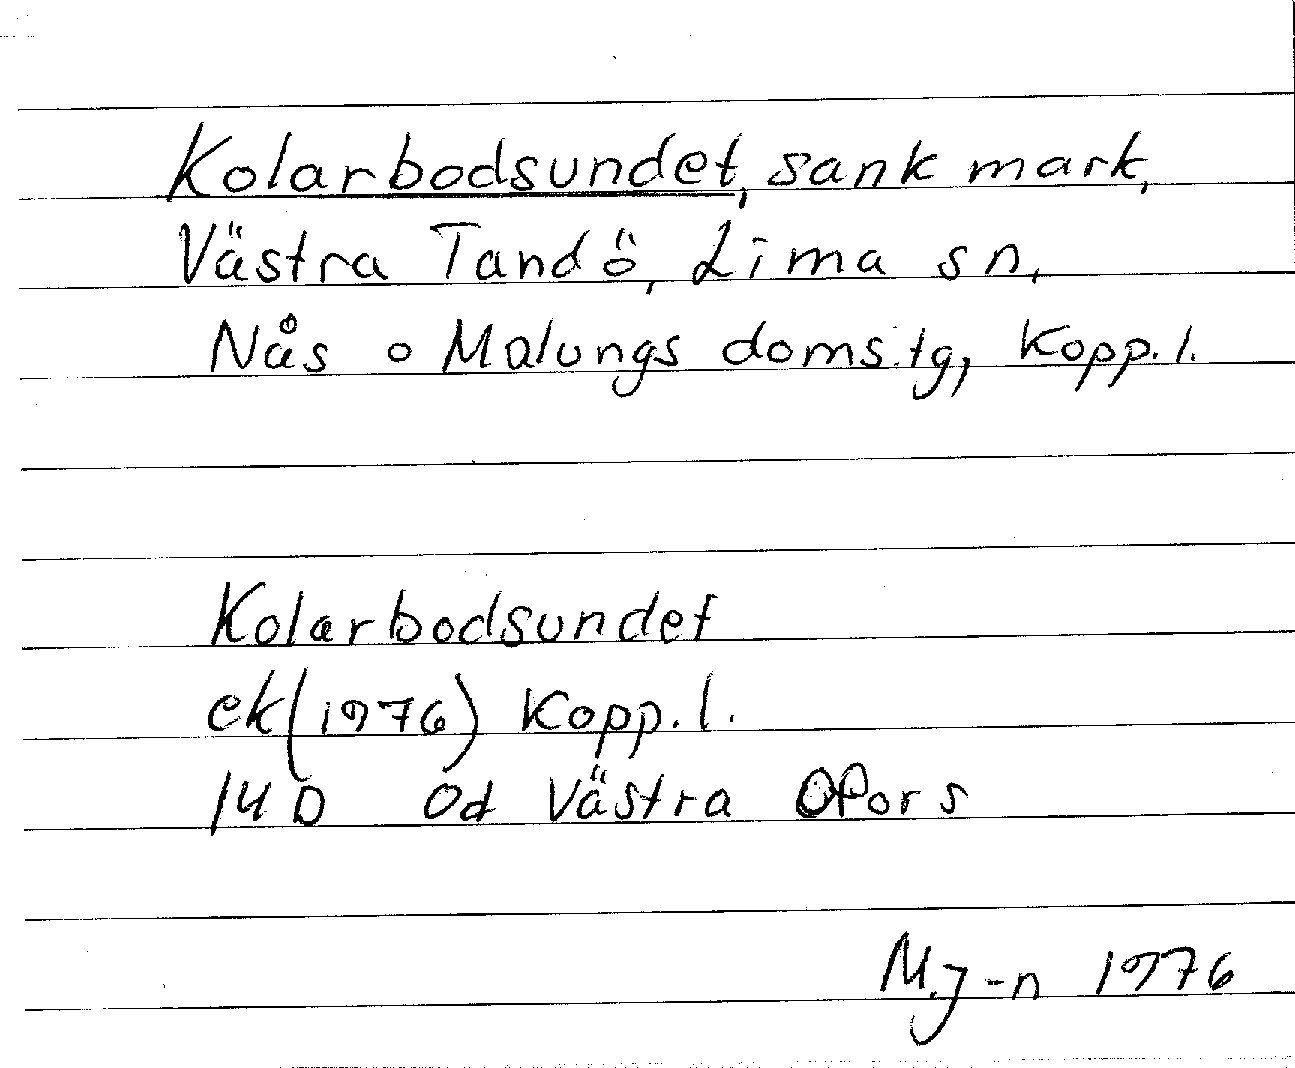 Kolarbodsundet, sank mark,
Västra Tandö, Lima sn,
Nås o Malungs doms.tg, Kopp.l.
Kolarbodsundet
ek (1976) Kopp.l.
14D 0d Västra Ofors
M.J-n 1976